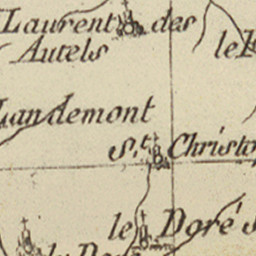 Laurent des
Autels
le
Landemont
St. Christo
le Doré